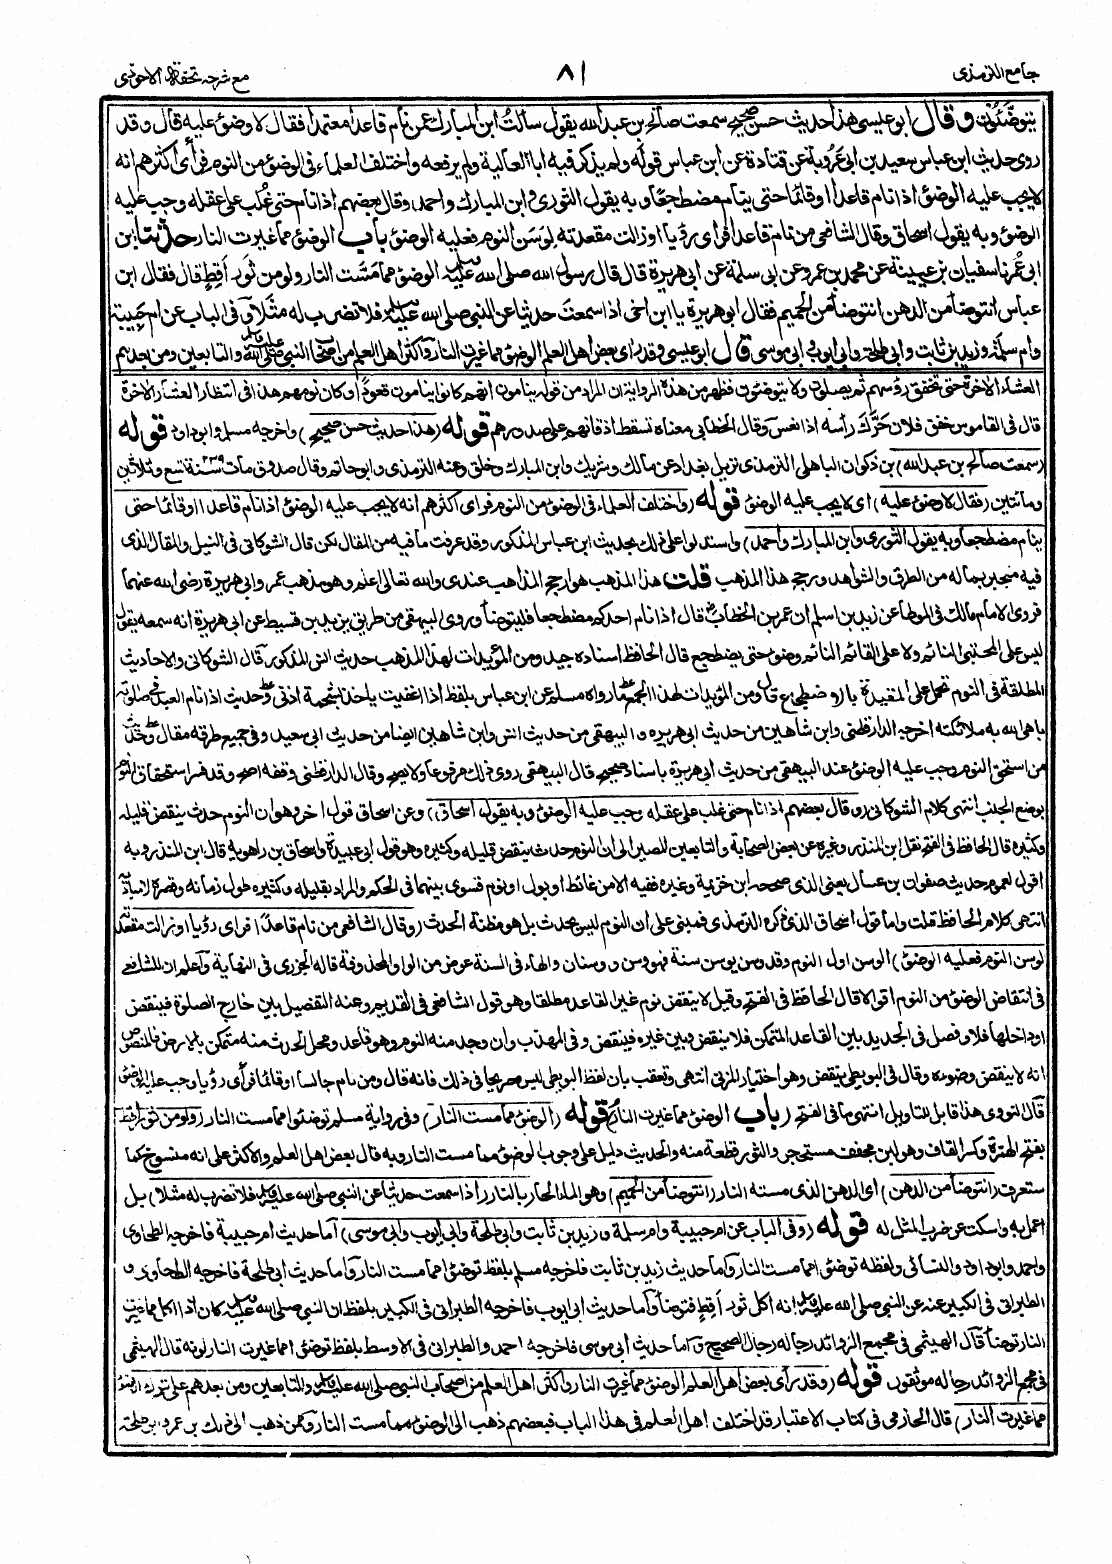 جامع الترمذی ۸۱ مع شرحہ تحفۃ الاحوذی
یتوضئون وقال ابو عیسی ھذا حدیث حسن صحیح سمعت صالح بن عبد اللہ یقول سألت ابن المبارک عن نام قاعدا معتمدا فقال لا وضوء علیہ قال وقد
روی حدیث ابن عباس سعید بن ابی عروبۃ عن قتادۃ عن ابن عباس قولہ ولم یذکر فیہ ابا العالیۃ ولم یرفعہ واختلف العلماء فی الوضوء من النوم فرأی اکثرھم انہ
لا یجب علیہ الوضوء اذا نام قاعدا او قائما حتی ینام مضطجعا وبہ یقول الثوری وابن المبارک واحمد وقال بعضھم اذا نام حتی غلب علی عقلہ وجب علیہ
الوضوء وبہ یقول اسحاق وقال الشافعی من نام قاعدا فرأی رؤیا او زالت مقعدتہ لوسن النوم فعلیہ الوضوء باب الوضوء مما غیرت النار حدثنا ابن
ابی عمر نا سفیان بن عیینۃ عن محمد بن عمرو عن ابی سلمۃ عن ابی ھریرۃ قال قال رسول اللہ صلی اللہ علیہ وسلم الوضوء مما مست النار ولو من ثور اقط قال فقال ابن
عباس انتوضأ من الدھن انتوضأ من الحمیم فقال ابو ھریرۃ یا ابن اخی اذا سمعت حدیثا عن النبی صلی اللہ علیہ وسلم فلا تضرب لہ مثلا وفی الباب عن ام حبیبۃ
وام سلمۃ وزید بن ثابت وابی طلحۃ وابی ایوب وابی موسی قال ابو عیسی وقد رأی بعض اھل العلم الوضوء مما غیرت النار واکثر اھل العلم من اصحاب النبی صلی اللہ علیہ وسلم والتابعین ومن بعدھم
العشاء الاخرۃ حتی تخفق رؤسھم ثم یصلون ولا یتوضئون فظھر من ھذہ الروایۃ ان المراد من قولہ ینامون انھم کانوا ینامون قعودا وکان نومھم ھذا فی انتظار العشاء الاخرۃ
قال فی القاموس خفق فلان حرک رأسہ اذا نعس وقال الخطابی معناہ تسقط اذقانھم علی صدورھم قولہ (ھذا حدیث حسن صحیح) واخرجہ مسلم وابو داود قولہ
(سمعت صالح بن عبد اللہ) بن ذکوان الباھلی الترمذی نزیل بغداد عن مالک وشریک وابن المبارک وخلق وعنہ الترمذی وابو حاتم وقال صدوق مات ۲۳۹ سنۃ تسع وثلاثین
ومائتین (فقال لا وضوء علیہ) ای لا یجب علیہ الوضوء قولہ (واختلف العلماء فی الوضوء من النوم فرای اکثرھم انہ لا یجب علیہ الوضوء اذا نام قاعدا او قائما حتی
ینام مضطجعا وبہ یقول الثوری وابن المبارک واحمد) واستدلوا علی ذلک بحدیث ابن عباس المذکور وقد عرفت ما فیہ من المقال لکن قال الشوکانی فی النیل والمقال الذی
فیہ منجبر بما لہ من الطرق والشواھد ورجح ھذا المذھب قلت ھذا المذھب ھو ارجح المذاھب عندی واللہ تعالی اعلم وھو مذھب عمر وابی ھریرۃ رضی اللہ عنھما
فروی الامام مالک فی الموطا عن زید بن اسلم ان عمر بن الخطاب قال اذا نام احدکم مضطجعا فلیتوضأ وروی البیھقی من طریق یزید بن قسیط عن ابی ھریرۃ انہ سمعہ یقول
لیس علی المحتبی النائم ولا علی القائم النائم وضوء حتی یضطجع قال الحافظ اسنادہ جید ومن المؤیدات لھذا المذھب حدیث انس المذکور قال الشوکانی والاحادیث
المطلقۃ فی النوم تحمل علی المقیدۃ بالاضطجاع قال ومن المؤیدات لھذا الجمع ما رواہ مسلم عن ابن عباس بلفظ اذا اغفیت یأخذ بشحمۃ اذنی وحدیث اذا نام العبد فی صلوتہ
باھی اللہ بہ ملائکتہ اخرجہ الدارقطنی وابن شاھین من حدیث ابی ھریرہ والبیھقی من حدیث انس وابن شاھین ایضا من حدیث ابی سعید وفی جمیع طرقہ مقال وحدیث
من استحق النوم وجب علیہ الوضوء عند البیھقی من حدیث ابی ھریرۃ باسناد صحیح قال البیھقی روی ذلک مرفوعا ولا یصح وقال الدارقطنی وقفہ اصح وقد فسر استحقاق النوم
بوضع الجنب انتھی کلام الشوکانی (وقال بعضھم اذا نام حتی غلب علی عقلہ وجب علیہ الوضوء وبہ یقول اسحاق) وعن اسحاق قول اخر وھو ان النوم حدث ینقض قلیلہ
وکثیرہ قال الحافظ فی الفتح نقل ابن المنذر وغیرہ عن بعض الصحابۃ والتابعین المصیر الی ان النوم حدث ینقض قلیلہ وکثیرہ وھو قول ابی عبیدۃ واسحاق بن راھویہ قال ابن المنذر وبہ
اقول لعموم حدیث صفوان بن عسال یعنی الذی صححہ ابن خزیمۃ وغیرہ ففیہ الا من غائط او بول او نوم فسوی بینھما فی الحکم والمراد بقلیلہ وکثیرہ طول زمانہ وقصرہ لا مبادیہ
انتھی کلام الحافظ قلت واما قول اسحاق الذی ذکرہ الترمذی فمبنی علی ان النوم لیس بحدث بل ھو مظنۃ الحدث (وقال الشافعی من نام قاعدا فرای رؤیا او زالت مقعدتہ
لوسن النوم فعلیہ الوضوء) الوسن اول النوم وقد وسن یوسن سنۃ فھو وسن ووسنان والھاء فی السنۃ عوض من الواو المحذوفۃ قالہ الجزری فی النھایۃ واعلم ان للشافعی
فی انتقاض الوضوء من النوم اقوالا قال الحافظ فی الفتح وقیل لا ینقض نوم غیر القاعد مطلقا وھو قول الشافعی فی القدیم وعنہ التفصیل بین خارج الصلوۃ فینقض
او داخلھا فلا وفصل فی الجدید بین القاعد المتمکن فلا ینقض وبین غیرہ فینقض وفی المھذب وان وجد منہ النوم وھو قاعد ومحل الحدث منہ متمکن بالارض فالمنصوص
انہ لا ینقض وضوءہ وقال فی البویطی ینتقض وھو اختیار المزنی انتھی وتعقب بان لفظ البویطی لیس صریحا فی ذلک فانہ قال ومن نام جالسا او قائما فرأی رؤیا وجب علیہ الوضوء
قال النووی ھذا قابل للتاویل انتھی ما فی الفتح (باب الوضوء مما غیرت النار) قولہ (الوضوء مما مست النار) وفی روایۃ مسلم توضئوا مما مست النار (ولو من ثور اقط)
بفتح الھمزۃ وکسر القاف وھو لبن مجفف مستحجر والثور قطعۃ منہ والحدیث دلیل علی وجوب الوضوء مما مست النار وبہ قال بعض اھل العلم والاکثر علی انہ منسوخ کما
ستعرف (انتوضأ من الدھن) ای الدھن الذی مستہ النار (انتوضأ من الحمیم) وھو الماء الحار بالنار (اذا سمعت حدیثا عن النبی صلی اللہ علیہ وسلم فلا تضرب لہ مثلا) بل
اعمل بہ واسکت عن ضرب المثل لہ قولہ (وفی الباب عن ام حبیبۃ وام سلمۃ وزید بن ثابت وابی طلحۃ وابی ایوب وابی موسی) اما حدیث ام حبیبۃ فاخرجہ الطحاوی
واحمد وابو داود والنسائی ولفظہ توضئوا مما مست النار واما حدیث زید بن ثابت فاخرجہ مسلم بلفظ توضئوا مما مست النار واما حدیث ابی طلحۃ فاخرجہ الطحاوی و
الطبرانی فی الکبیر عنہ عن النبی صلی اللہ علیہ وسلم انہ اکل ثور اقط فتوضأ واما حدیث ابی ایوب فاخرجہ الطبرانی فی الکبیر بلفظ ان النبی صلی اللہ علیہ وسلم کان اذا اکل مما غیرت
النار توضأ قال الھیثمی فی مجمع الزوائد رجالہ رجال الصحیح واما حدیث ابی موسی فاخرجہ احمد والطبرانی فی الاوسط بلفظ توضئوا مما غیرت النار لونہ قال الھیثمی
فی مجمع الزوائد رجالہ موثقون قولہ (وقد رأی بعض اھل العلم الوضوء مما غیرت النار واکثر اھل العلم من اصحاب النبی صلی اللہ علیہ وسلم والتابعین ومن بعدھم علی ترک الوضوء
مما غیرت النار) قال الحازمی فی کتاب الاعتبار قد اختلف اھل العلم فی ھذا الباب فبعضھم ذھب الی الوضوء مما مست النار وممن ذھب الی ذلک ابن عمر وابو طلحۃ